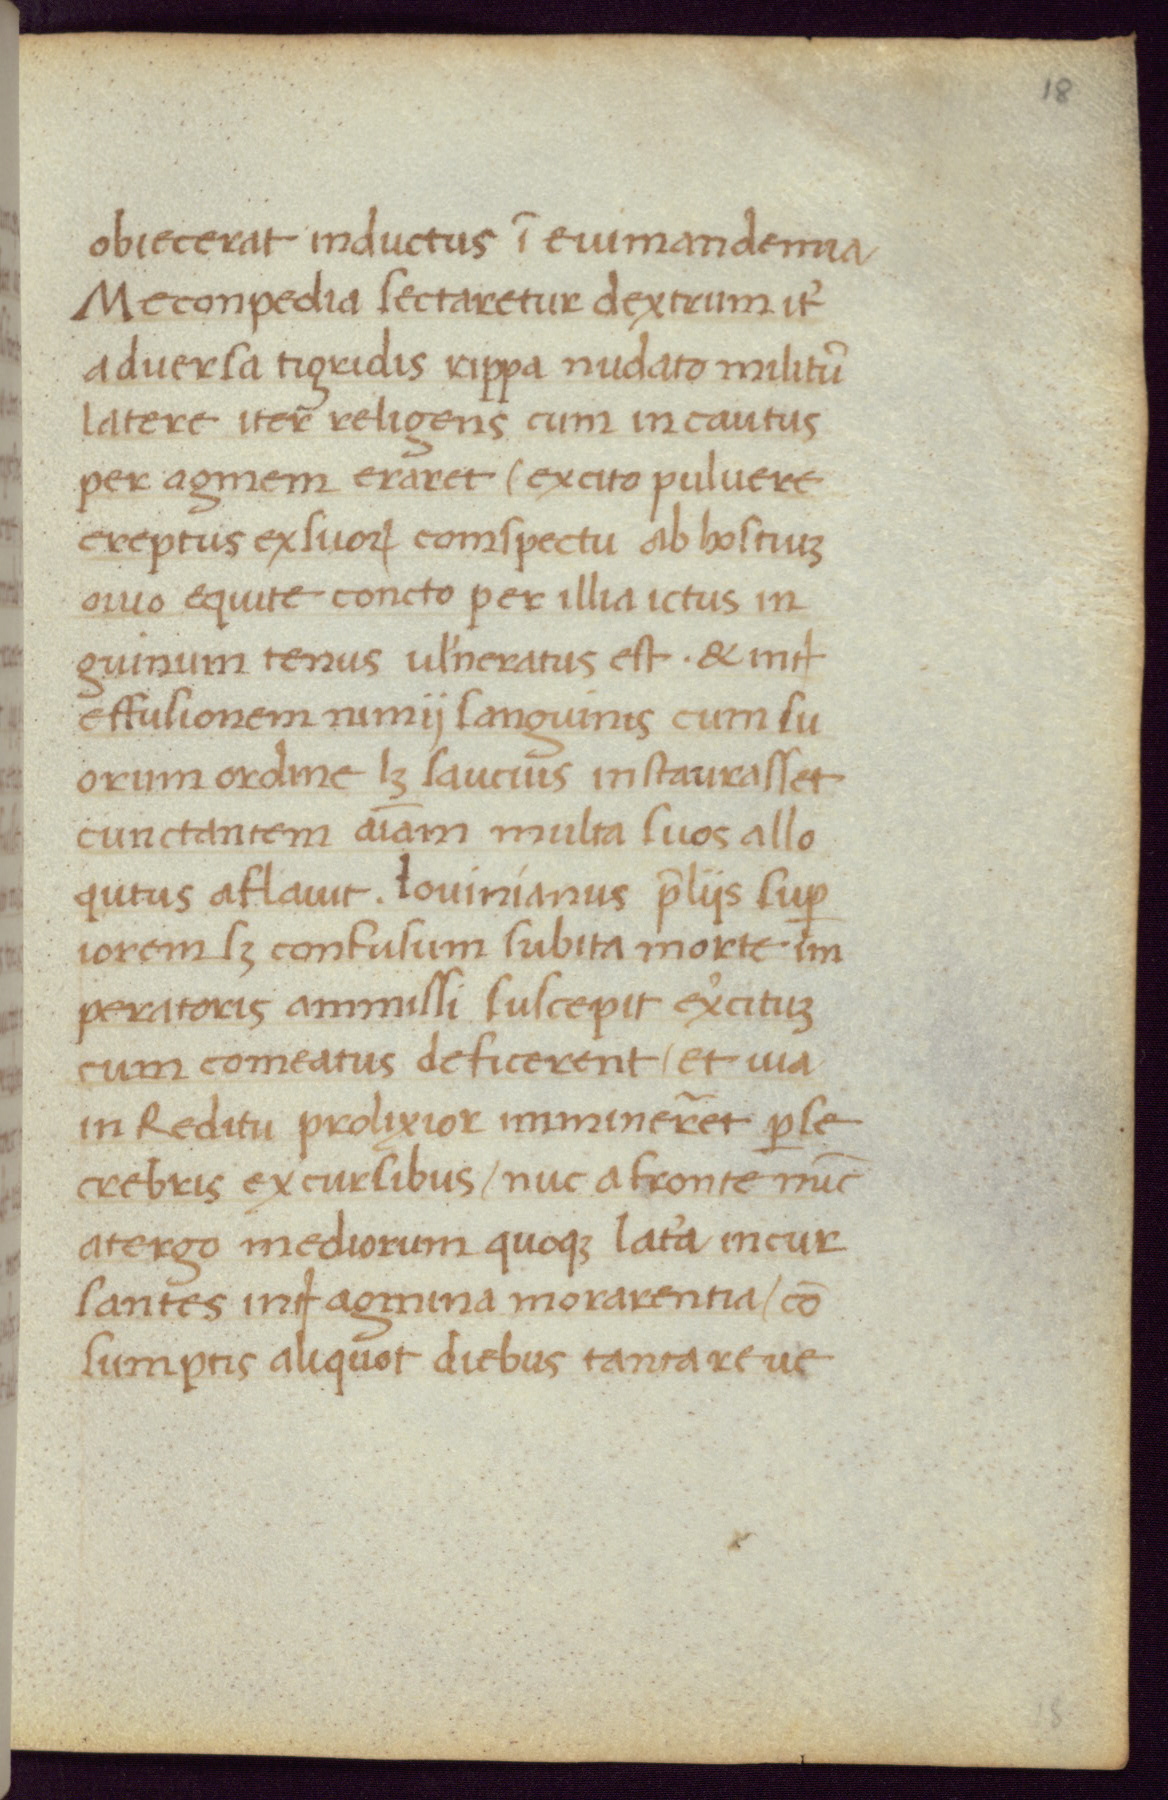 18
obiecerat inductus ī euimandenua
Meconpedia sectaretur dextrum it̉
aduersa tigridis rippa nudato militū
latere iter̄ religens cum incautus
per agmem eraret / excito puluere
ereptus exsuoꝝ comspectu ab hostiuꝫ
ouio equite concto per illia ictus in
guinum tenus ul̓neratus est . & int̵
effusionem nimij sanguinis cum su
orum ordine lꝫ saucius instaurasset
cunctantem aīam multa suos allo
qutus aflauit . Iouinianus p̄lijs suꝑ
iorem sꝫ confusum subita morte im
peratoris ammissi suscepit ex̉cituꝫ
cum comeatus deficerent / et uia
in Reditu prolixior imminer̄et ꝑse
crebris excursibus / nuc afronte nūc
atergo mediorum quoqꝫ lat̉a incur
santes int̵ agmina morarentia / cō
sumptis aliquot diebus tantareue
18